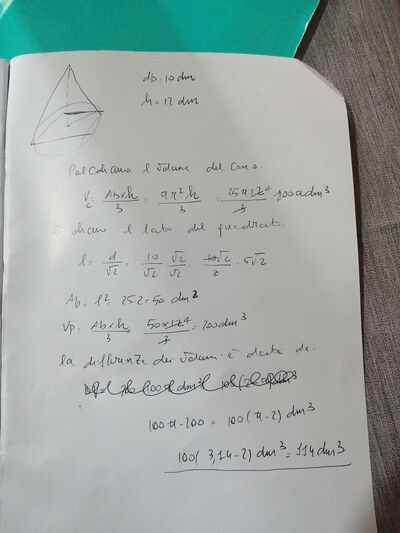 db=10 dm
h=12 dm
Calcoliamo il volume del cono.
Vc = Ab×h/3 = πr²h/3 = 25π12⁴/3 = 100π dm³
il lato del quadrato.
l = d/√2 = 10/√2 √2/√2 = 10√2/2 = 5√2
Ab = l² = 25·2 = 50 dm²
Vp = Ab×h/3 = 50×12⁴/3 = 200 dm³
la differenza dei volumi è data da.
100π-200 = 100(π-2) dm³
100(3,14-2) dm³ = 114 dm³